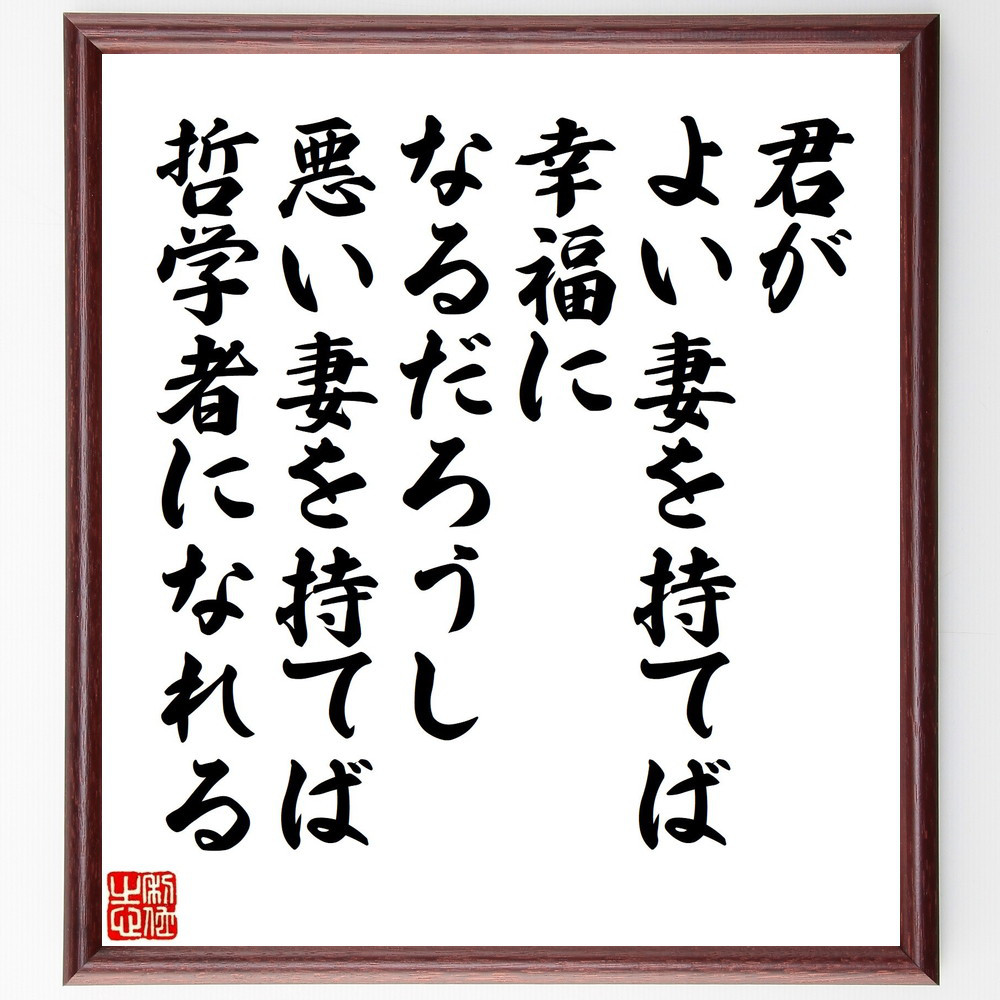 君が
よい妻を持てば
幸福に
なるだろうし
悪い妻を持てば
哲学者になれる